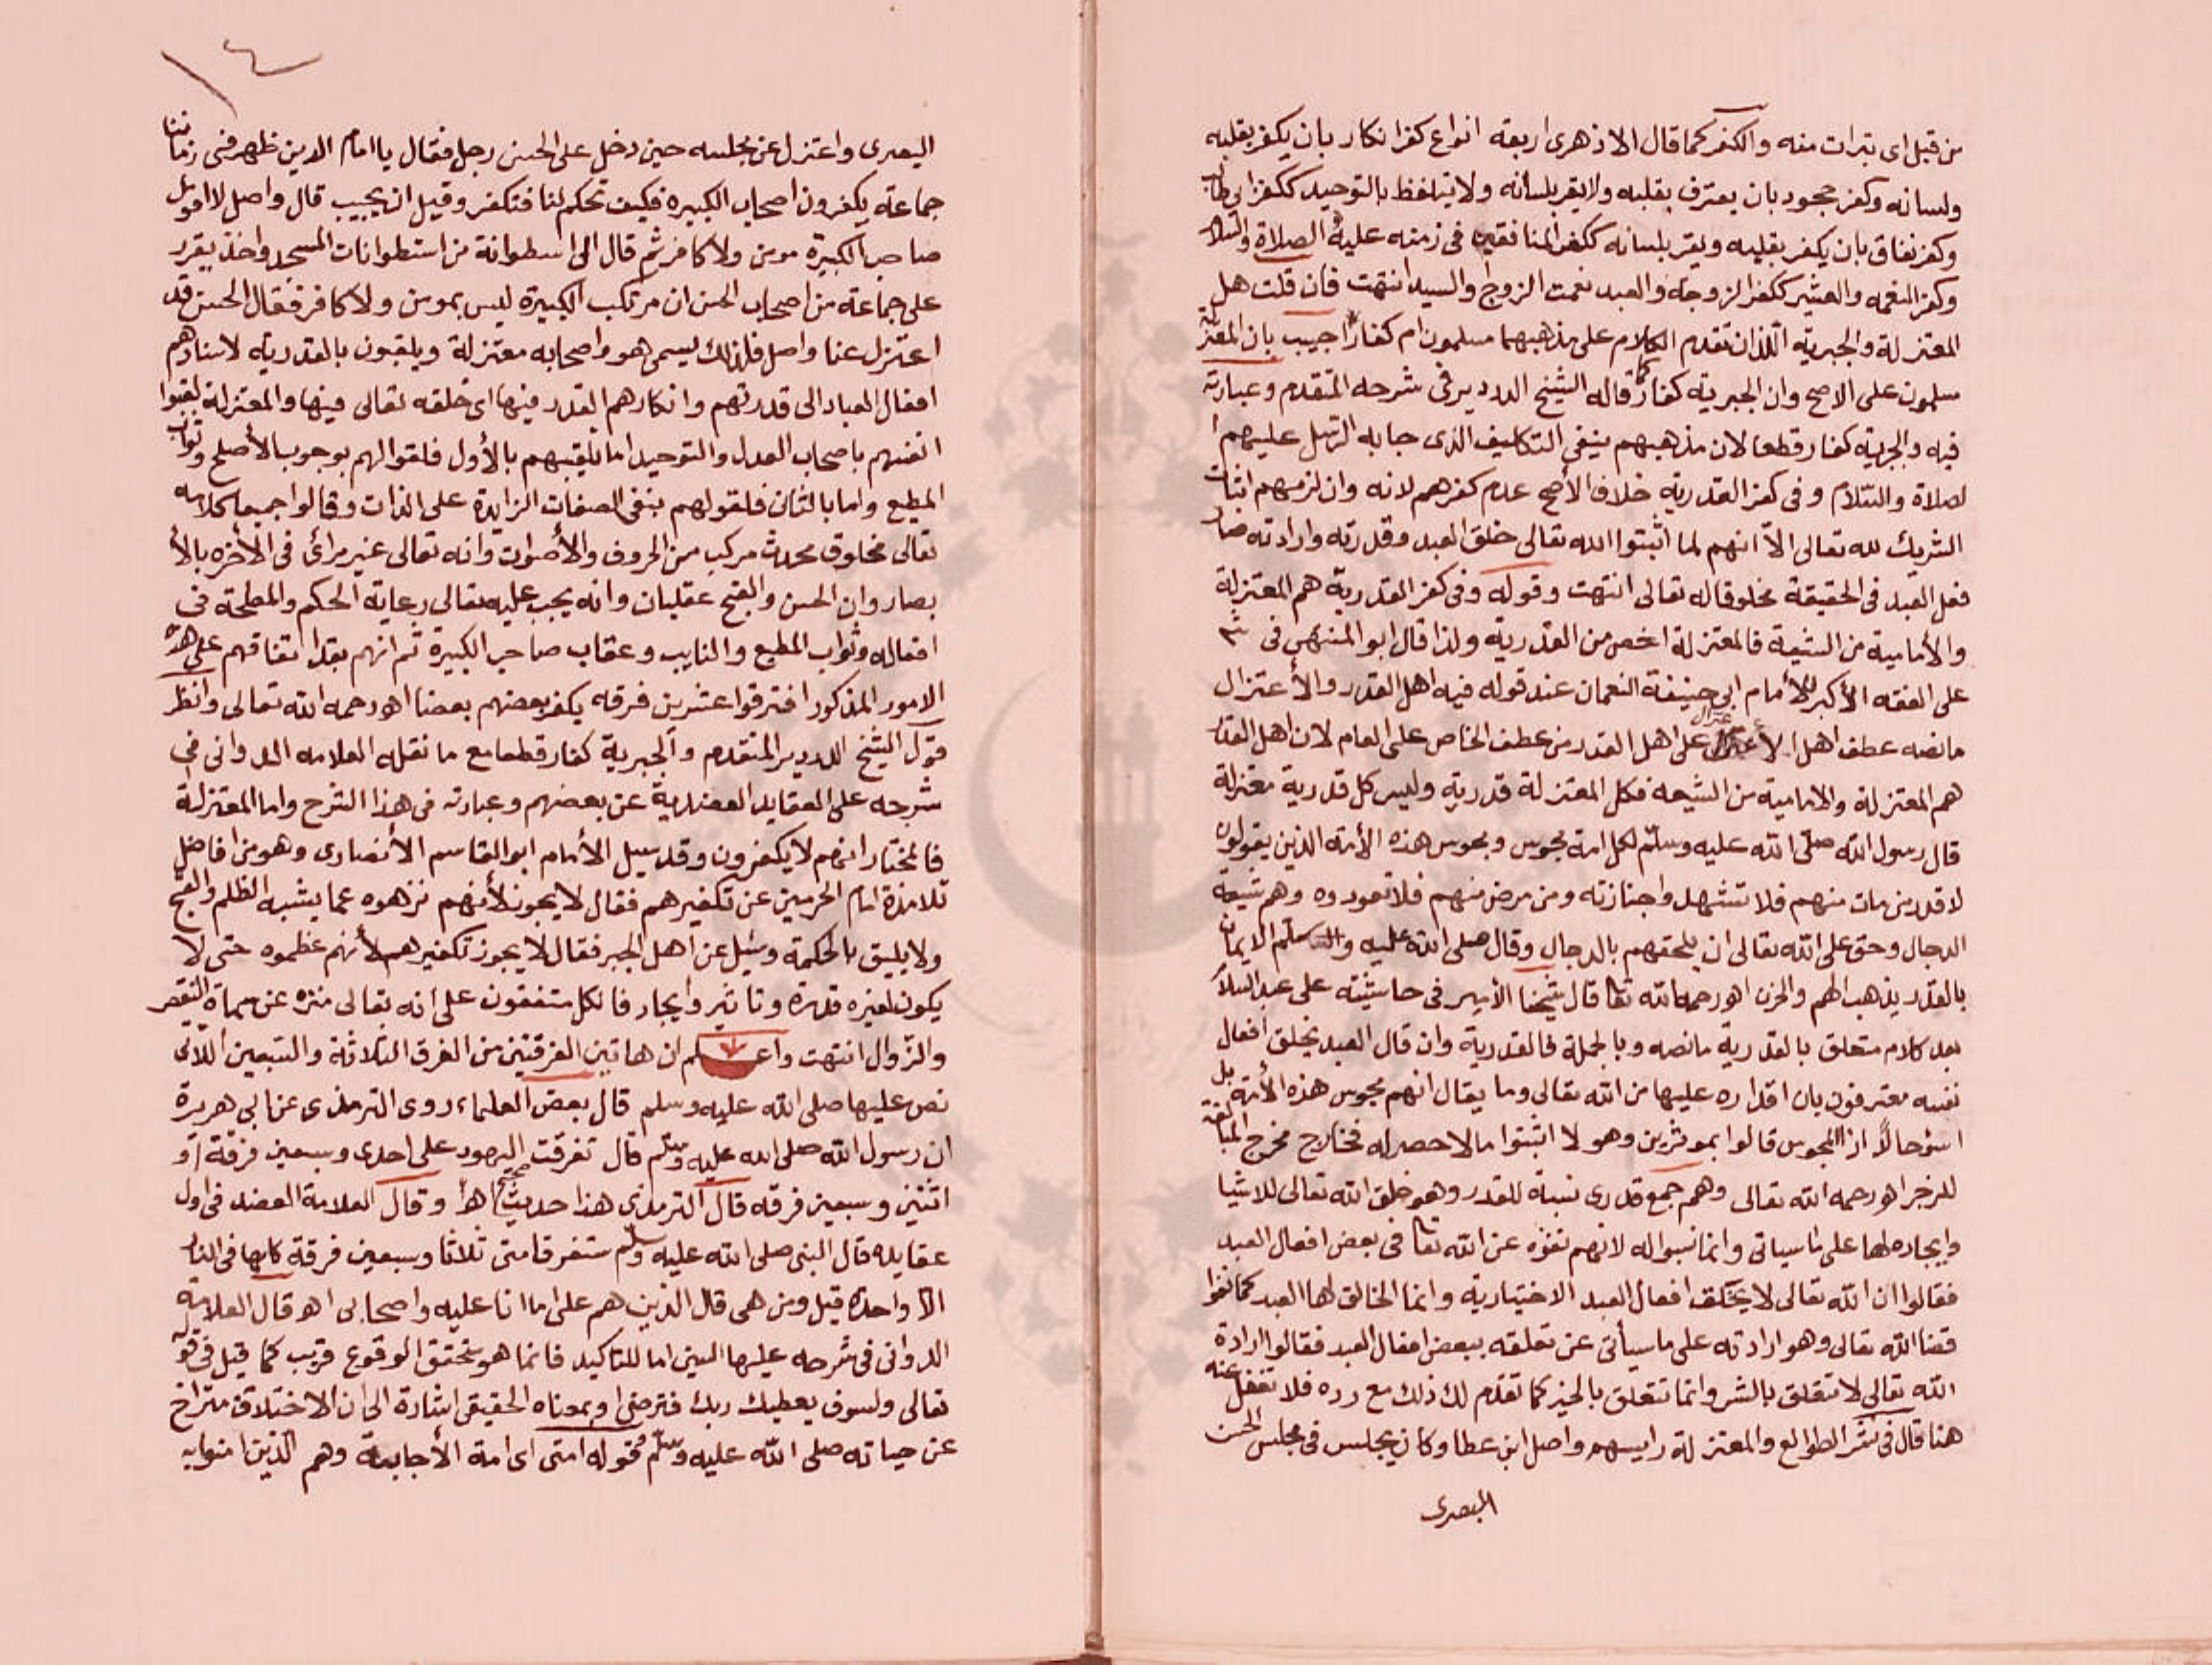 من قبل اى تبرات منه والكفر كما قال الازهرى اربعة انواع كفر انكار بان يكفر بقلبه
ولسانه وكفر جحود بان يعترف بقلبه ولا يقر بلسانه ولا يتلفظ بالتوحيد ككفر ابى طالب
وكفر نفاق بان يكفر بقلبه ويقر بلسانه ككفر المنافقين فى زمنه عليه الصلاة والسلام
وكفر النعمه والعشير ككفر الزوجة والعبد نعمت الزوج والسيد انتهت فان قلت هل
المعتزلة والجبرية اللذان تقدم الكلام على مذهبهما مسلمون ام كفار اجيب بان المعتزلة
مسلمون على الاصح وان الجبرية كفار كما قاله الشيخ الدردير فى شرحه المتقدم وعبارته
فيه والجبرية كفار قطعا لان مذهبهم ينفى التكليف الذى جا به الرسل عليهم ا
لصلاة والسلام وفى كفر القدرية خلاف الأصح عدم كفرهم لانه وان لزمهم اثبات
الشريك لله تعالى الا انهم لما اثبتوا الله تعالى خلق العبد وقدرته وارادته صار
فعل العبد فى الحقيقة مخلوقا له تعالى انتهت وقوله وفى كفر القدرية هم المعتزلة
والأمامية من الشيعة فالمعتزلة اخص من القدرية ولذا قال ابو المنتهى فى شرحه
على الفقه الأكبر للأمام ابى حنيفة النعمان عند قوله فيه اهل القدر والأعتزال
ما نصه عطف اهل الأعتزال على اهل القدر من عطف الخاص على العام لان اهل القدر
هم المعتزلة والامامية من الشيعه فكل المعتزلة قدرية وليس كل قدرية معتزلة
قال رسول الله صلى الله عليه وسلم لكل امة مجوس ومجوس هذه الأمة الذين يقولون
لا قدر من مات منهم فلا تشهدوا جنازته ومن مرض منهم فلا تعودوه وهم شيعة
الدجال وحق على الله تعالى ان يلحقهم بالدجال وقال صلى الله عليه وسلم الايمان
بالقدر يذهب الهم والحزن اهو رحمه الله تعا قال شيخنا الأمير فى حاشيته على عبد السلام
بعد كلام متعلق بالقدرية ما نصه وبالجملة فالقدرية وان قال العبد يخلق افعال
نفسه معترفون بان اقداره عليها من الله تعالى وما يقال انهم مجوس هذه الأمة بل
اسؤ حالاً اذ المجوس قالوا بموثرين وهولا اثبتوا ما لا حصر له فخارج مخرج المبالغة
للزجر اهو رحمه الله تعالى وهم جمع قدرى نسبة للقدر وهو خلق الله تعالى للاشيا
وايجاده لها على ما سياتى وانما نسبوا له لانهم نفوه عن الله تعا فى بعض افعال العبد
فقالوا ان الله تعالى لا يخلق افعال العبد الاختيارية وانما الخالق لها العبد كما نفوا
قضا الله تعالى وهو ارادته على ما سيأتى عن تعلقه ببعض افعال العبد فقالوا ارادة
الله تعالى لا تتعلق بالشر وانما تتعلق بالخير كما تقدم لك ذلك مع رده فلا تغفل عنه
هنا قال فى نشر الطوالع والمعتزلة رايسهم واصل ابن عطا وكان يجلس فى مجلس الحسن
البصرى
١٤
البصرى واعتزل عن مجلسه حين دخل على الحسن رجل فقال يا امام الدين ظهر فى زماننا
جماعة يكفرون اصحاب الكبيره فكيف تحكم لنا فتكفر وقيل ان يجيب قال واصل لا اقول
صاحب الكبيرة مومن ولا كافر ثم قال الى اسطوانة من استطوانات المسجد واخذ يقرر
على جماعة من اصحاب الحسن ان مرتكب الكبيرة ليس بمومن ولا كافر فقال الحسن قد
اعتزل عنا واصل فلذلك يسمى هو واصحابه معتزلة ويلقبون بالقدرية لاسنادهم
افعال العباد الى قدرتهم وانكارهم القدر فيها اى خلقه تعالى فيها والمعتزلة لقبوا
انفسهم باصحاب العدل والتوحيد اما تلقيبهم بالأول فلقوالهم بوجوب الأصلح وثواب
المطيع واما بالثان فلقولهم بنفى الصفات الزايدة على الذات وقالوا جميعا كلامه
تعالى مخلوق محدث مركب من الحروف والأصوات وانه تعالى غير مرائ فى الأخره بالأ
بصار وان الحسن والقبح عقليان وانه يجب عليه تعالى رعاية الحكم والمصلحة فى
افعاله وثواب المطيع والتايب وعقاب صاحب الكبيرة ثم انهم بعد اتفاقهم على هذه
الامور المذكور افترقوا عشرين فرقه يكفر بعضهم بعضا اهو رحمه الله تعالى وانظر
قول الشيخ الدردير المتقدم والجبرية كفار قطعا مع ما نقله العلامه الدوانى فى
شرحه على العقايد العضدية عن بعضهم وعبارته فى هذا الشرح واما المعتزلة
فالمختار انهم لا يكفرون وقد سيل الأمام ابو القاسم الأنصارى وهو من افاضل
تلامذة امام الحرمين عن تكفيرهم فقال لا يجوز لأنهم نزهوه عما يشبه الظلم والقبح
ولا يليق بالحكمة وسيل عن اهل الجبر فقال لا يجوز تكفيرهم لأنهم عظموه حتى لا
يكون لغيره قدرة وتاثير وايجاد فالكل متفقون على أنه تعالى منزه عن سماة النقص
والزوال انتهت واعلم ان هاتين الفرقتين من الفرق الثلاثة والسبعين اللاتى
نص عليها صلى الله عليه وسلم قال بعض العلماء روى الترمذى عن ابى هريرة
ان رسول الله صلى الله عليه وسلم قال تفرقت اليهود على احدى وسبعين فرقة او
اثنين وسبعين فرقه قال الترمذى هذا حديث صحيح اهو وقال العلامة العضد فى اول
عقايده قال النبى صلى الله عليه وسلم ستفرق امتى ثلاثا وسبعين فرقة كلها فى النار
الا واحدة قيل ومن هى قال الذين هم على ما انا عليه واصحابى اهو قال العلامة
الدوانى فى شرحه عليها السين اما للتاكيد فانما هو متحقق الوقوع قريب كما قيل فى قوله
تعالى ولسوف يعطيك ربك فترضى او بمعناه الحقيقى اشارة الى ان الاختلاف متراخ
عن حياته صلى الله عليه وسلم فقوله امتى اى امة الأجابة وهم الذين امنوا به